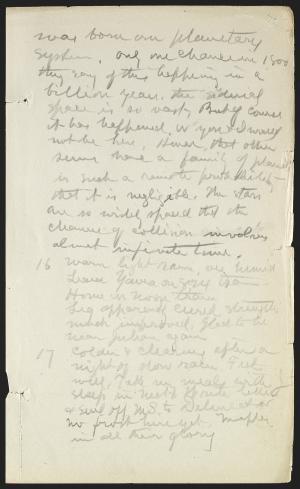 was born our planetary
system. only one chance in 1800
they say of this happening in a
billion years. the sidereal
space is so vast, But of course
it has happened, or you & I would
not be here. However, that other
suns have a family of planets
is such a remote probability
that it is negligible. The stars
are so widely spaced that the
chance of collision involves
almost infinite time.
16 warm light rain, and humid
Leave Yama on
Home in
Leg apparently cured, strength
much improved. Glad to be
near Julian again
17 Colder & clearing after a
night of slow rain. Feel
well, Take my meals with
sleep in write letters
& send off M.S. to
no frost here yet. Maples
in all their glory